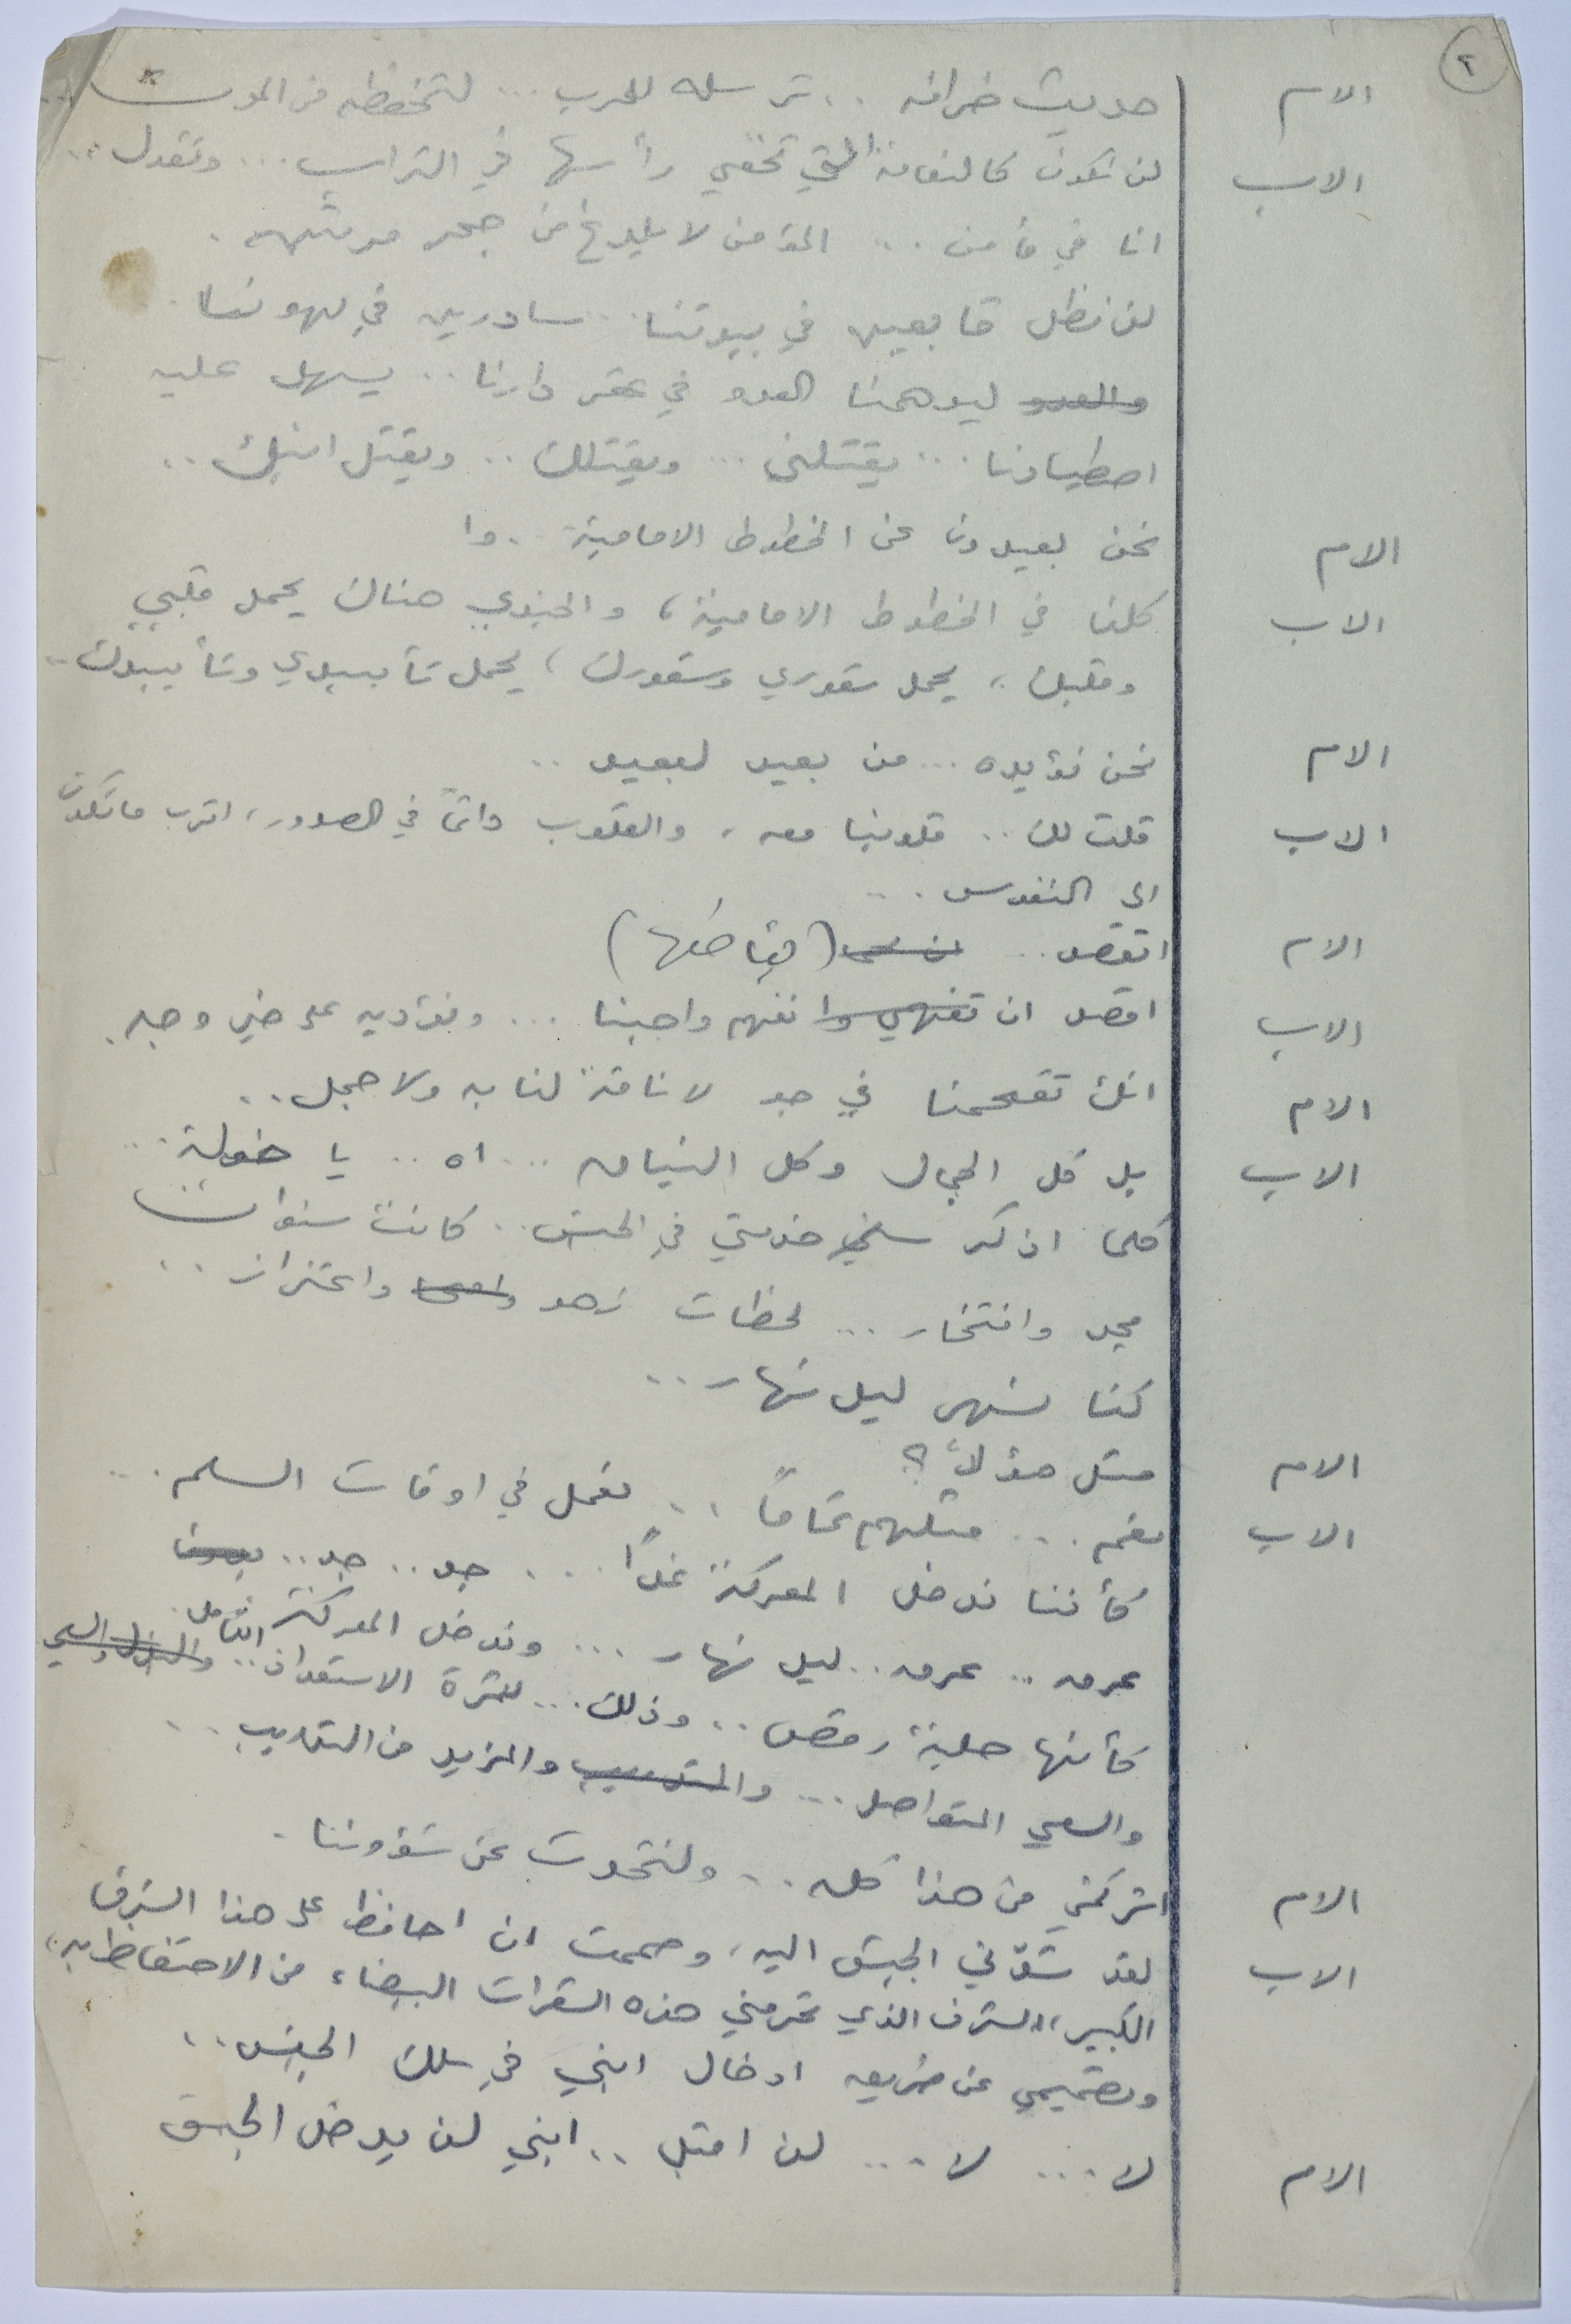 ٢
الام حديث خرافه .. ترسله للحرب ... لتحفظه من الموت ..
الاب لن نكون كالنعامة التي تخفي رأسها في التراب ... وتقول ..
انا في مأمن ... المؤمن لا يلدغ من جحر مرتين .
لن نظل قابعين في بيوتنا .. سادرين في لهونا ..
والعدو ليدهمنا العدو في عقر دارنا .. يسهل عليه
اصطيادنا ... يقتلني ... ويقتلك .. ويقتل ابنك ..
الام نحن بعيدون عن الخطوط الامامية .. وا
الاب كلنا في الخطوط الامامية ، والجندي هناك يحمل قلبي
وقلبك ، يحمل شعوري وشعورك ، يحمل تأييدي وتأييدك ..
الام نحن نؤيده ... من بعيد لبعيد ..
الاب قلت لك .. قلوبنا معه ، والقلوب دائماً في الصدور ، اقرب ماتكون
الى النفوس ...
الام اتقصد .. (يقاطعها)
الاب اقصد ان تفهمي وا نفهم واجبنا ... ونؤديه على خير وجه .
الام انك تقحمنا في جو لا ناقة لنا به ولا جمل ..
الاب بل كل الجمال وكل النياق ... اه .. يا خولة ...
كلما اذكر سني خدمتي في الجيش .. كانت سنوات
مجد وافتخار ... لحظات زهو واعتزاز ..
كنا نسهر ليل نهار ..
الام مثل هؤلاء ؟
الاب نعم ... مثلهم تماماً .. نعمل في اوقات السلم ...
كأننا ندخل المعركة غداً ... جد .. جد ..
عرق .. عرق .. ليل نهار ... وندخل المعركة
كأنها حلبة رقص .. وذلك ... لثمرة الاستعداد .. الشامل . والسعي
والسعي المتواصل ... والتدريب والمزيد من التدريب ..
الام اتركني من هذا كله .. ولنتحدث عن شؤوننا .
الاب لقد شدّني الجيش اليه ، وصممت ان احافظ على هذا الشرف
الكبير ، الشرف الذي تحرمني هذه الشعرات البيضاء من الاحتفاظ به ،
وتصميمي عن طريق ادخال ابني في سلك الجيش ..
الام لا ... لا ... لن اقبل .. ابني لن يدخل الجيش